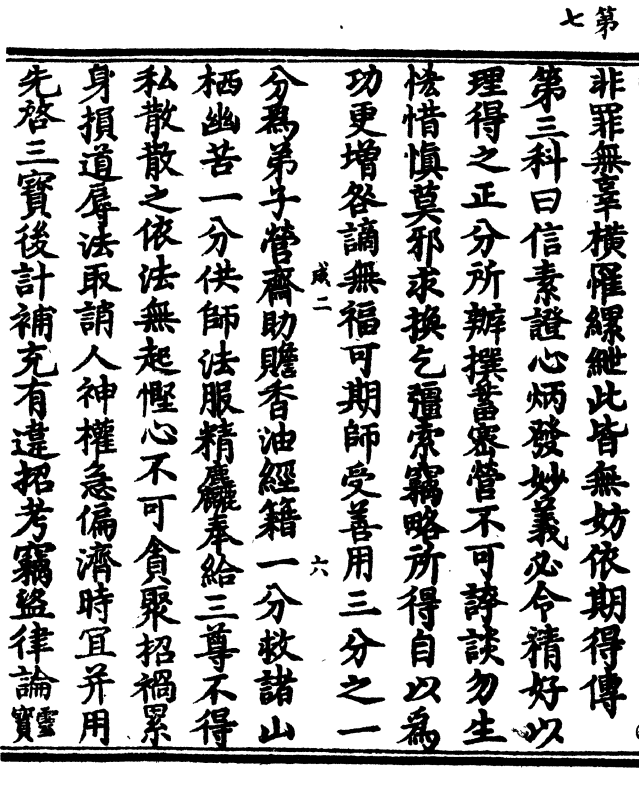 第七
非罪無辜橫罹縲紲此皆無妨依期得傳
第三科曰信素證心炳發妙義必令精好以
理得之正分所辦撰蓄密營不可誶談勿生
恡惜慎莫邪求換乞彊索竊略所得自以為
功更增咎謫無福可期師受善用三分之一
咸二
六
分為弟子營齋助贍香油經籍一分救諸山
栖幽苦一分供師法服精麤奉給三尊不得
私散散之依法無起慳心不可貪聚招禍累
身損道辱法取誚人神權急偏濟時冝并用
先啓三寶後計補充有違招考竊盜律論靈寶